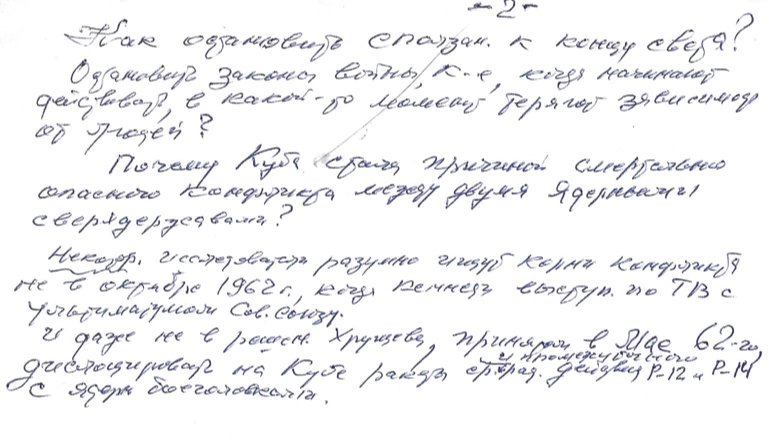 - 2 -
Как остановить сползан. к концу света?
Остановить законы войны, к-е, когда начинают
действовать, в какой-то момент теряют зависимость
от людей?
Почему Куба стала причиной смертельно
опасного конфликта между двумя ядерными
сверхдержавами?
Некотор. исследователи разумно ищут корни конфликта
не в октябре 1962 г., когда Кеннеди выступ. по ТВ с
ультиматумом Сов. Союзу.
И даже не в решен. Хрущева, принятом в мае 62-го,
и промежуточного
дислоцировать на Кубе ракеты ср. рад. действия Р-12 и Р-14
с ядерн боеголовками.